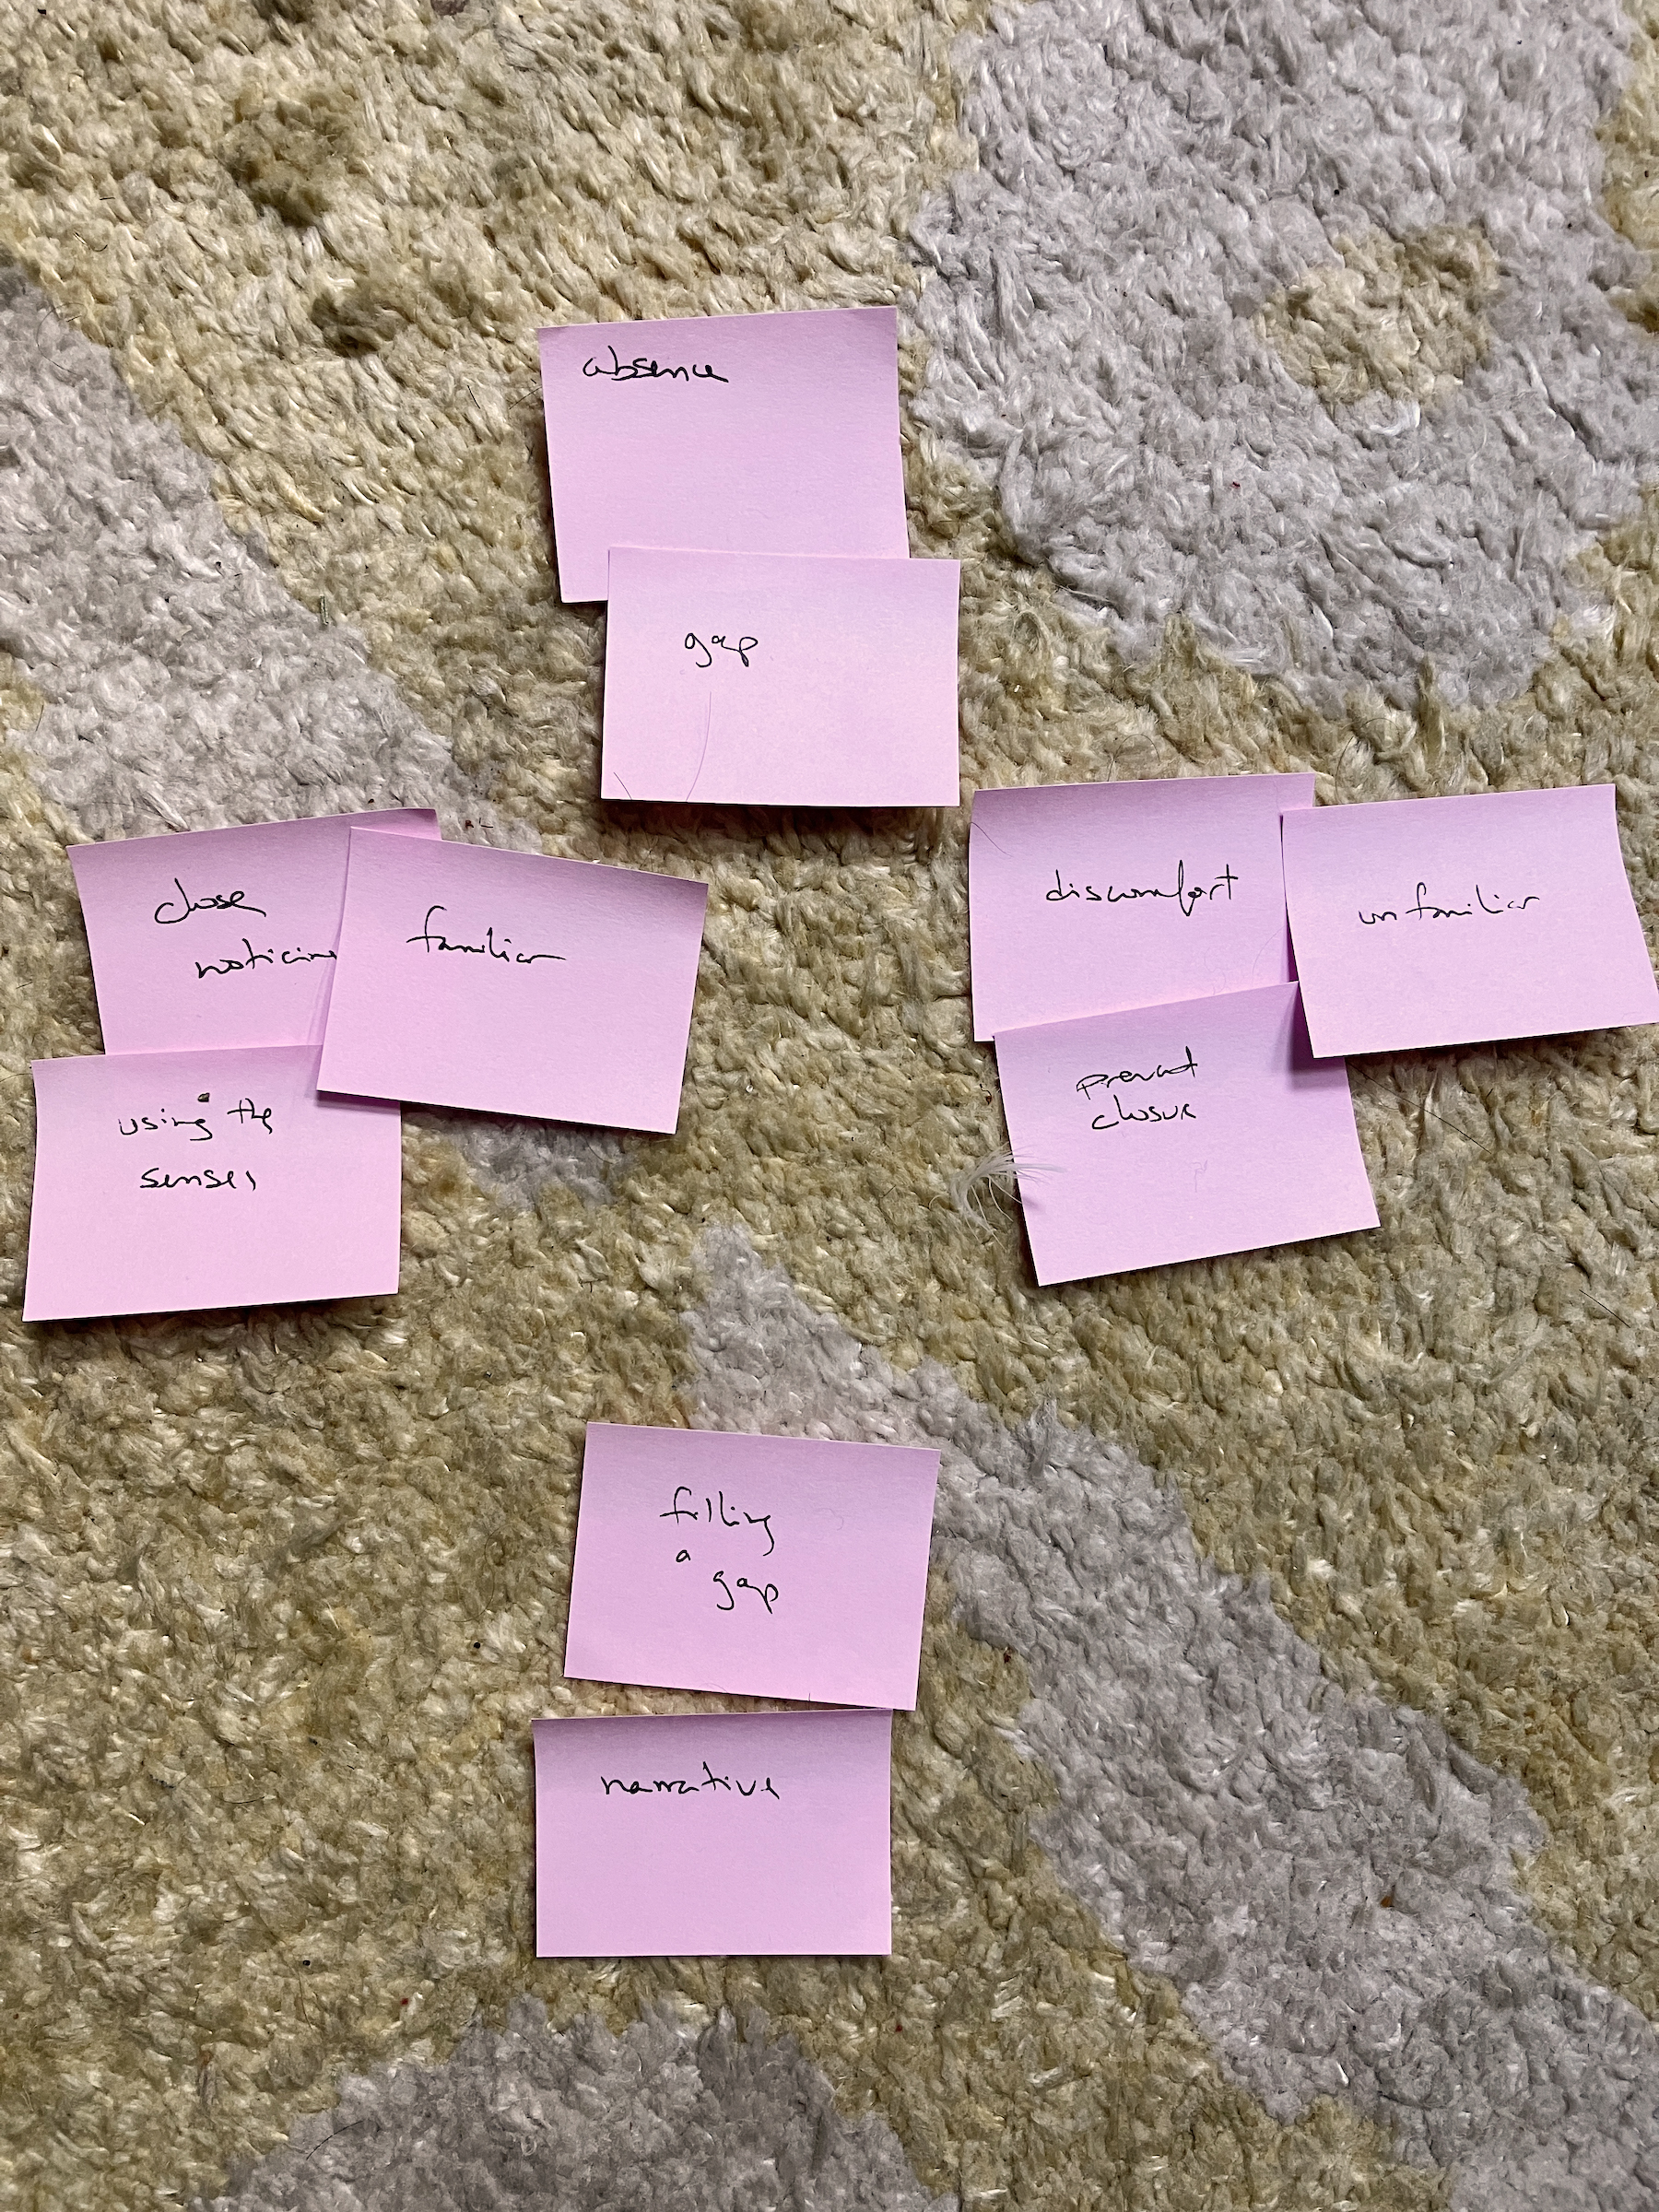 absence
gap
close
noticing
familiar
using the
senses
discomfort
unfamiliar
prevent
closure
filling
a
gap
narrative